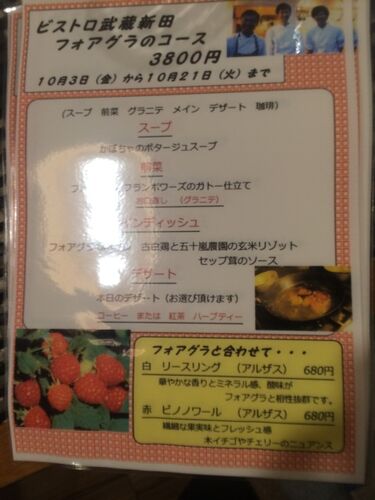 ビストロ武蔵新田
フォアグラのコース
3800円
10月3日(金)から10月21日(火)まで
(スープ 前菜 グラニテ メイン デザート 珈琲)
スープ
かぼちゃのポタージュスープ
前菜
フランボワーズのガトー仕立て
お口直し (グラニテ)
メインディッシュ
フォアグラ 古白鶏と五十嵐農園の玄米リゾット
セップ茸のソース
デザート
本日のデザート(お選び頂けます)
コーヒー または 紅茶 ハーブティー
フォアグラと合わせて・・・
白 リースリング (アルザス) 680円
華やかな香りとミネラル感、酸味が
フォアグラと相性抜群です。
赤 ピノノワール (アルザス) 680円
繊細な果実味とフレッシュ感
木イチゴやチェリーのニュアンス